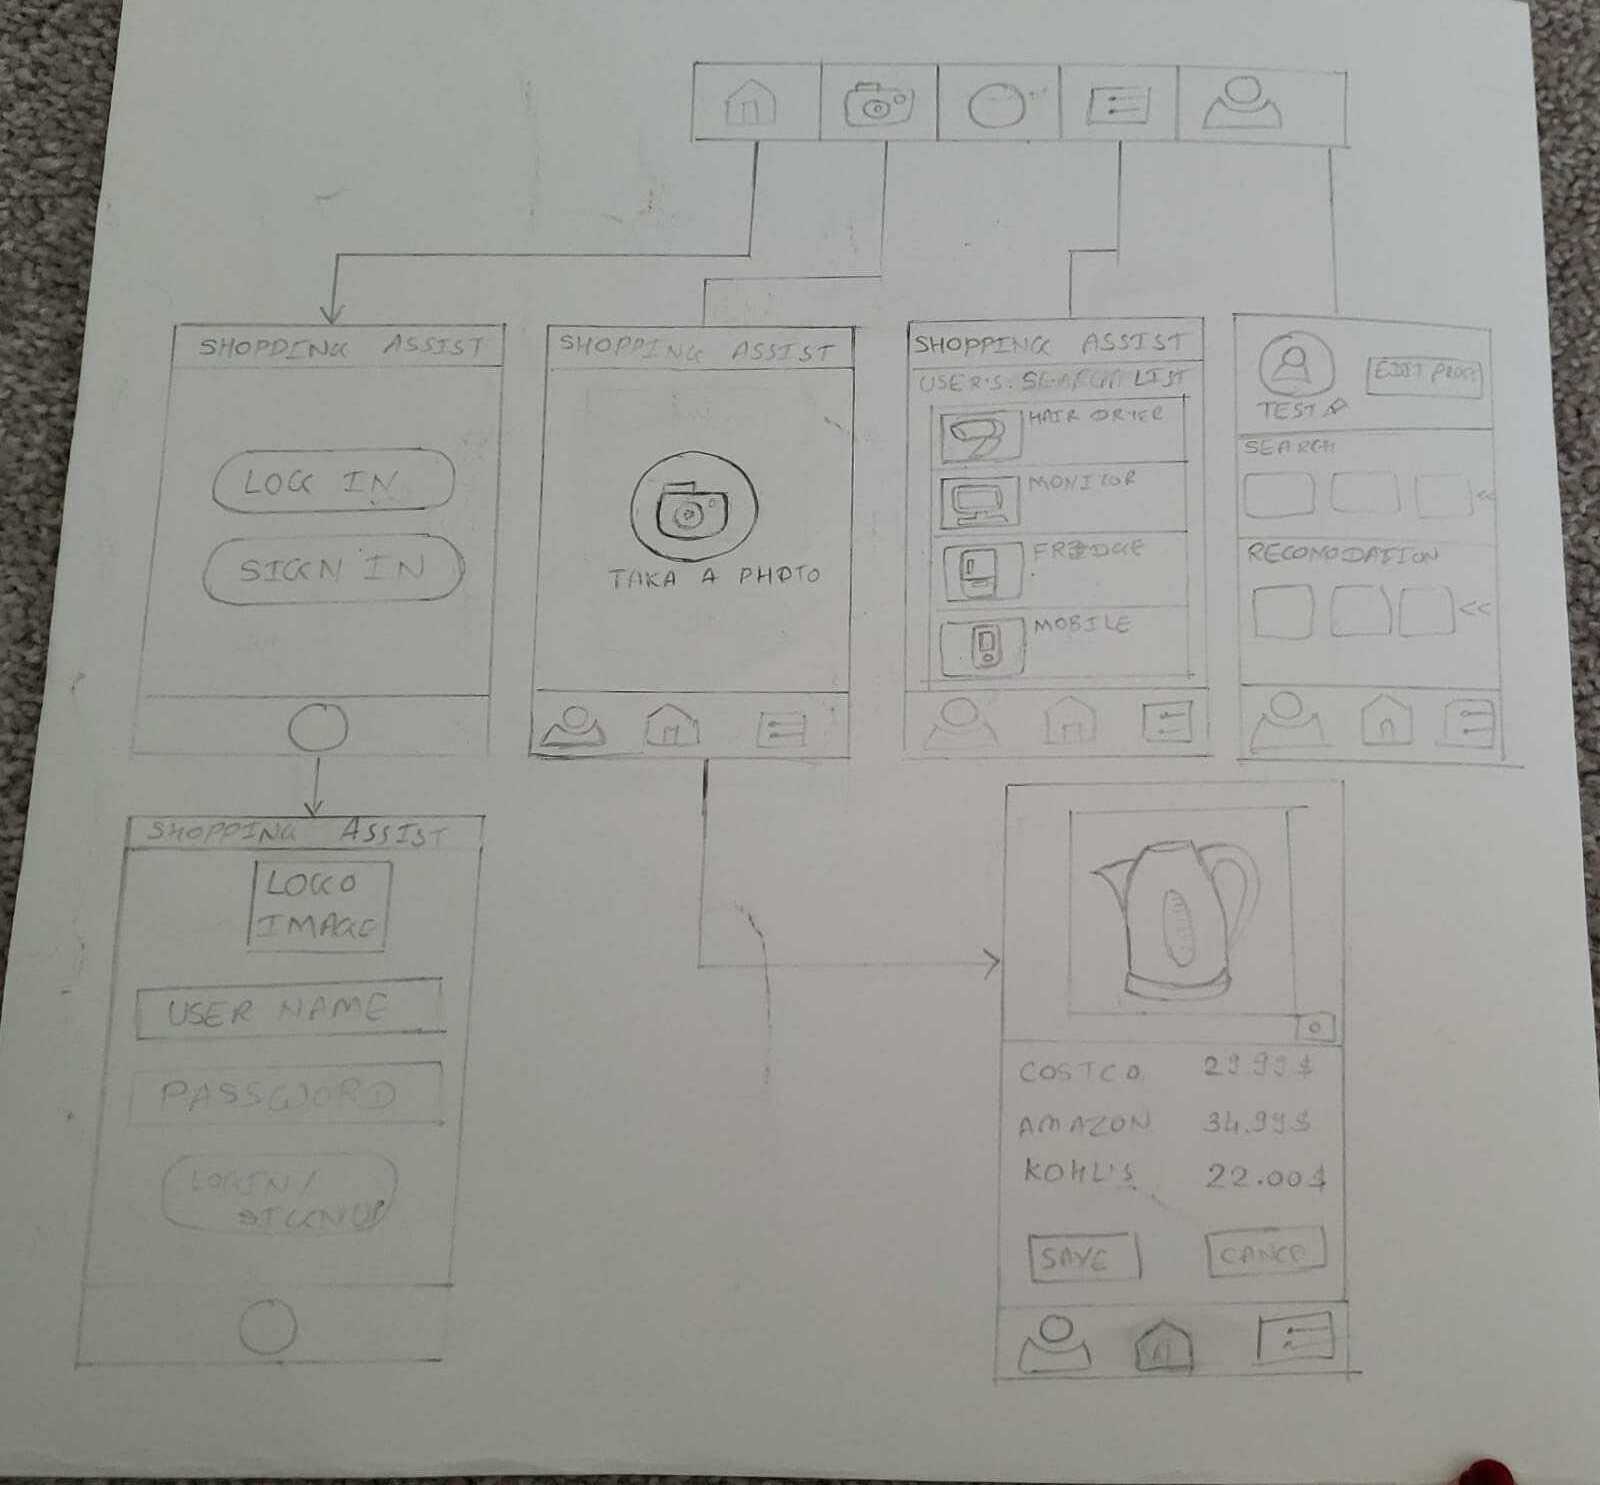 SHOPPING ASSIST
LOG IN
SIGN IN
SHOPPING ASSIST
TAKA A PHOTO
SHOPPING ASSIST
USER'S SEARCH LIST
HAIR DRYER
MONITOR
FRIDGE
MOBILE
EDIT
TEST
SEARCH
<<
RECOMODATION
<<
SHOPPING ASSIST
LOGO
IMAGE
USER NAME
PASSWORD
LOGIN/
SIGNUP
COSTCO 29.99$
AMAZON 34.99$
KOHL'S 22.00$
SAVE CANCE